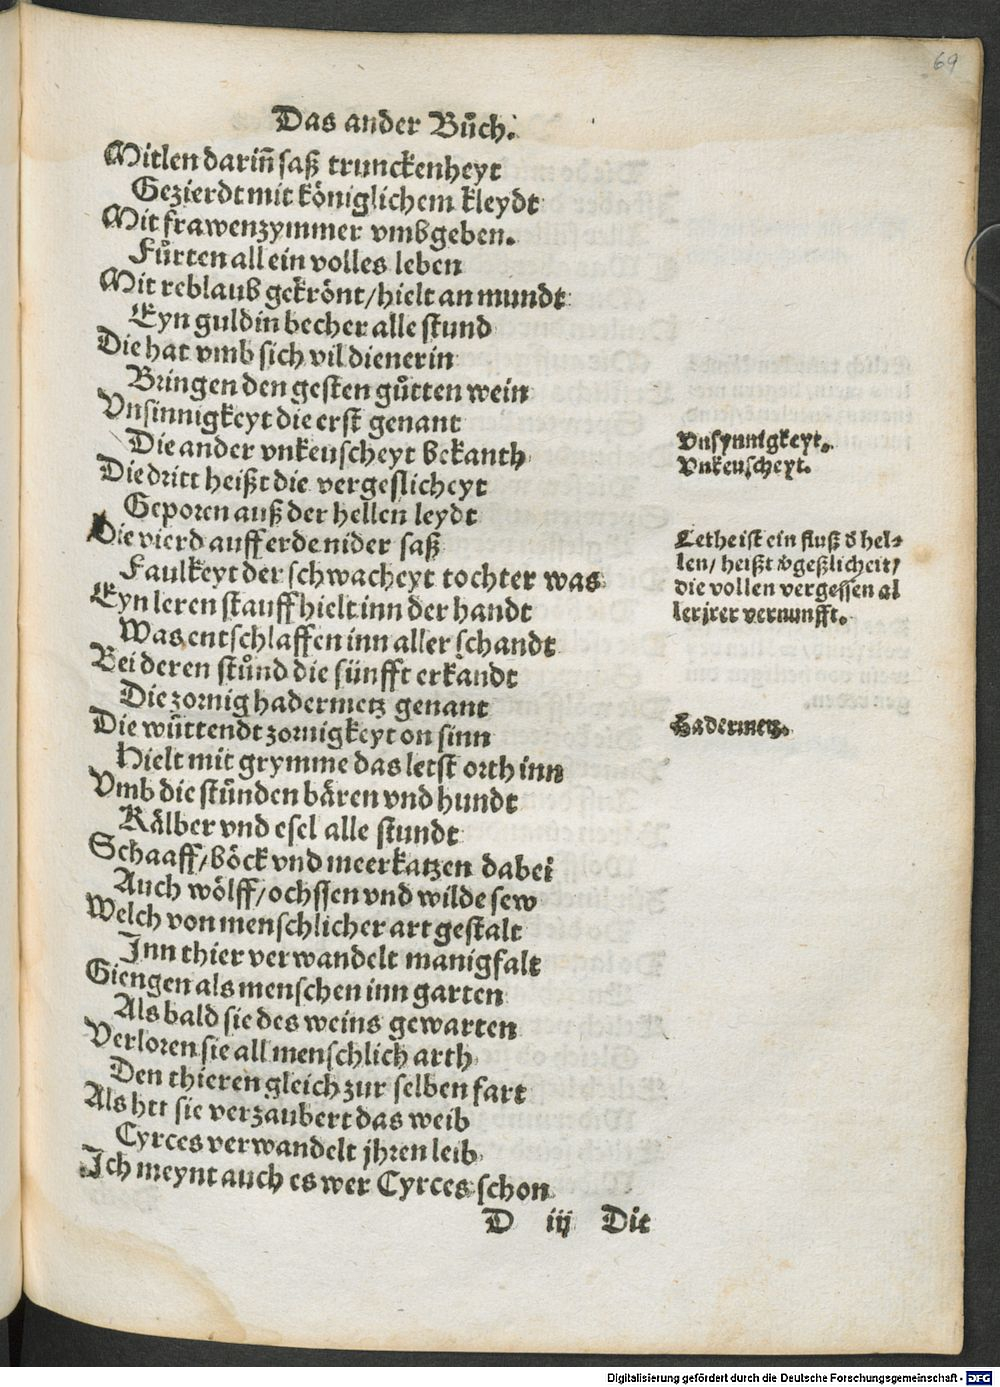 69
Das ander Bůch.
Mitlen dariñ saß trunckenheyt
Gezierdt mit königlichem kleydt
Mit frawenzymmer vmbgeben.
Fürten all ein volles leben
Mit reblaub gekrönt/hielt an mundt
Eyn guldin becher alle stund
Die hat vmb sich vil dienerin
Bringen den gesten gůtten wein
Vnsinnigkeyt die erst genant
Die ander vnkeuscheyt bekanth
Die dritt heißt die vergeslicheyt
Geporen auß der hellen leydt
Die vierd auff erde nider saß
Faulkeyt der schwacheyt tochter was
Eyn leren stauff hielt inn der handt
Was entschlaffen inn aller schandt
Bei deren stůnd die fünfft erkandt
Die zornig hadermetz genant
Die wüttendt zornigkeyt on sinn
Hielt mit grymme das letst orth inn
Vmb die stůnden bären vnd hundt
Kälber vnd esel alle stundt
Schaaff/böck vnd meerkatzen dabei
Auch wölff/ochssen vnd wilde sew
Welch von menschlicher art gestalt
Inn thier verwandelt manigfalt
Giengen als menschen inn garten
Als bald sie des weins gewarten
Verloren sie all menschlich arth
Den thieren gleich zur selben fart
Als hett sie verzaubert das weib
Cyrces verwandelt jhren leib
Ich meynt auch es wer Cyrces schon
D iij Die
Vnsynnigkeyt.
Vnkeuscheyt.
Lethe ist ein fluß d̓ hel⸗
len/ heißt v̓geßlicheit/
die vollen vergessen al
ler jrer vernunfft.
Hadermetz.
Digitalisierung gefördert durch die Deutsche Forschungsgemeinschaft - DFG